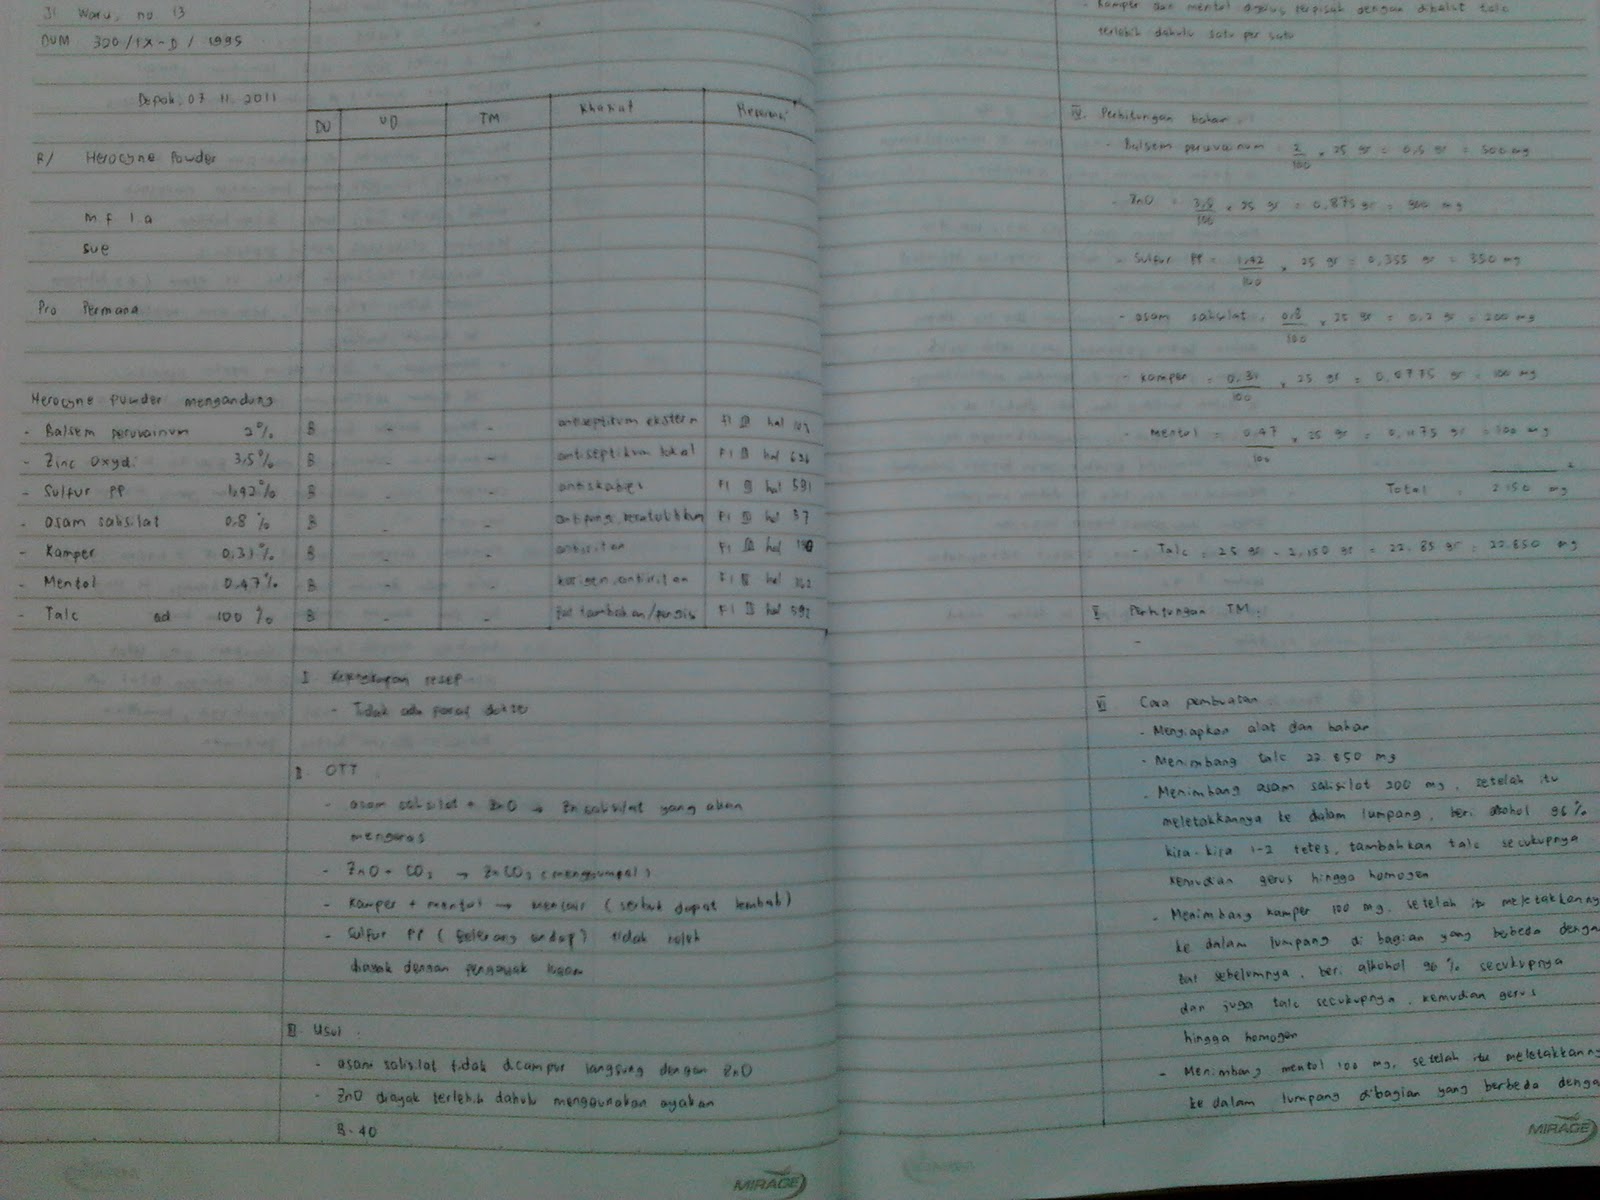 Jl Waru, no 13
DUM 320/IX-D/1995
Depok, 07 11 2011
R/ Herocyne Powder
m f l a
sue
Pro Permana
DU UD TM Khasiat
Herocyne powder mengandung
- Balsem peruvainum 2% B - - antiseptikum ekstern FI III hal 102
- Zinc Oxyd. 3,5% B - - antiseptikum lokal FI III hal 636
- Sulfur PP 1,42% B - - antiskabies FI III hal 591
- asam salisilat 0,8% B - - FI III hal 57
- Kamper 0,31% B - - antiiritan FI III hal 130
- Mentol 0,47% B - - korigen, antiiritan FI III hal 362
- Talc ad 100% B - - zat tambahan/pengisi FI III hal 591
I Kelengkapan resep
- Tidak ada paraf dokter
II OTT
- asam salisilat + ZnO → Zn salisilat yang akan
mengeras
- ZnO + CO2 → ZnCO3 (menggumpal)
- Kamper + mentol → mencair (serbuk dapat lembab)
- Sulfur PP (belerang endap) tidak boleh
diayak dengan pengayak logam
III Usul :
- asam salisilat tidak dicampur langsung dengan ZnO
- ZnO diayak terlebih dahulu menggunakan ayakan
B-40
MIRAGE
- Kamper dan mentol digerus terpisah dengan dibalut talc
terlebih dahulu satu per satu
IV. Perhitungan bahan
- Balsem peruvainum = 2/100 x 25 gr = 0,5 gr = 500 mg
- ZnO = 3,5/100 x 25 gr = 0,875 gr = 900 mg
- Sulfur PP = 1,42/100 x 25 gr = 0,355 gr = 350 mg
- asam salisilat = 0,8/100 x 25 gr = 0,2 gr = 200 mg
- Kamper = 0,31/100 x 25 gr = 0,0775 gr = 100 mg
- Mentol = 0,47/100 x 25 gr = 0,1175 gr = 100 mg
Total = 2150 mg
- Talc = 25 gr - 2,150 gr = 22,85 gr = 22.850 mg
V Perhitungan TM :
-
VI Cara pembuatan
- Menyiapkan alat dan bahan
- Menimbang talc 22.850 mg
- Menimbang asam salisilat 200 mg, setelah itu
meletakkannya ke dalam lumpang, beri alkohol 96%
kira-kira 1-2 tetes, tambahkan talc secukupnya
kemudian gerus hingga homogen
- Menimbang kamper 100 mg, setelah itu meletakkanny
ke dalam lumpang di bagian yang bebeda denga
zat sebelumnya, beri alkohol 96% secukupnya
dan juga talc secukupnya, kemudian gerus
hingga homogen
- Menimbang mentol 100 mg, setelah itu meletakkanny
ke dalam lumpang dibagian yang berbeda denga
MIRAGE